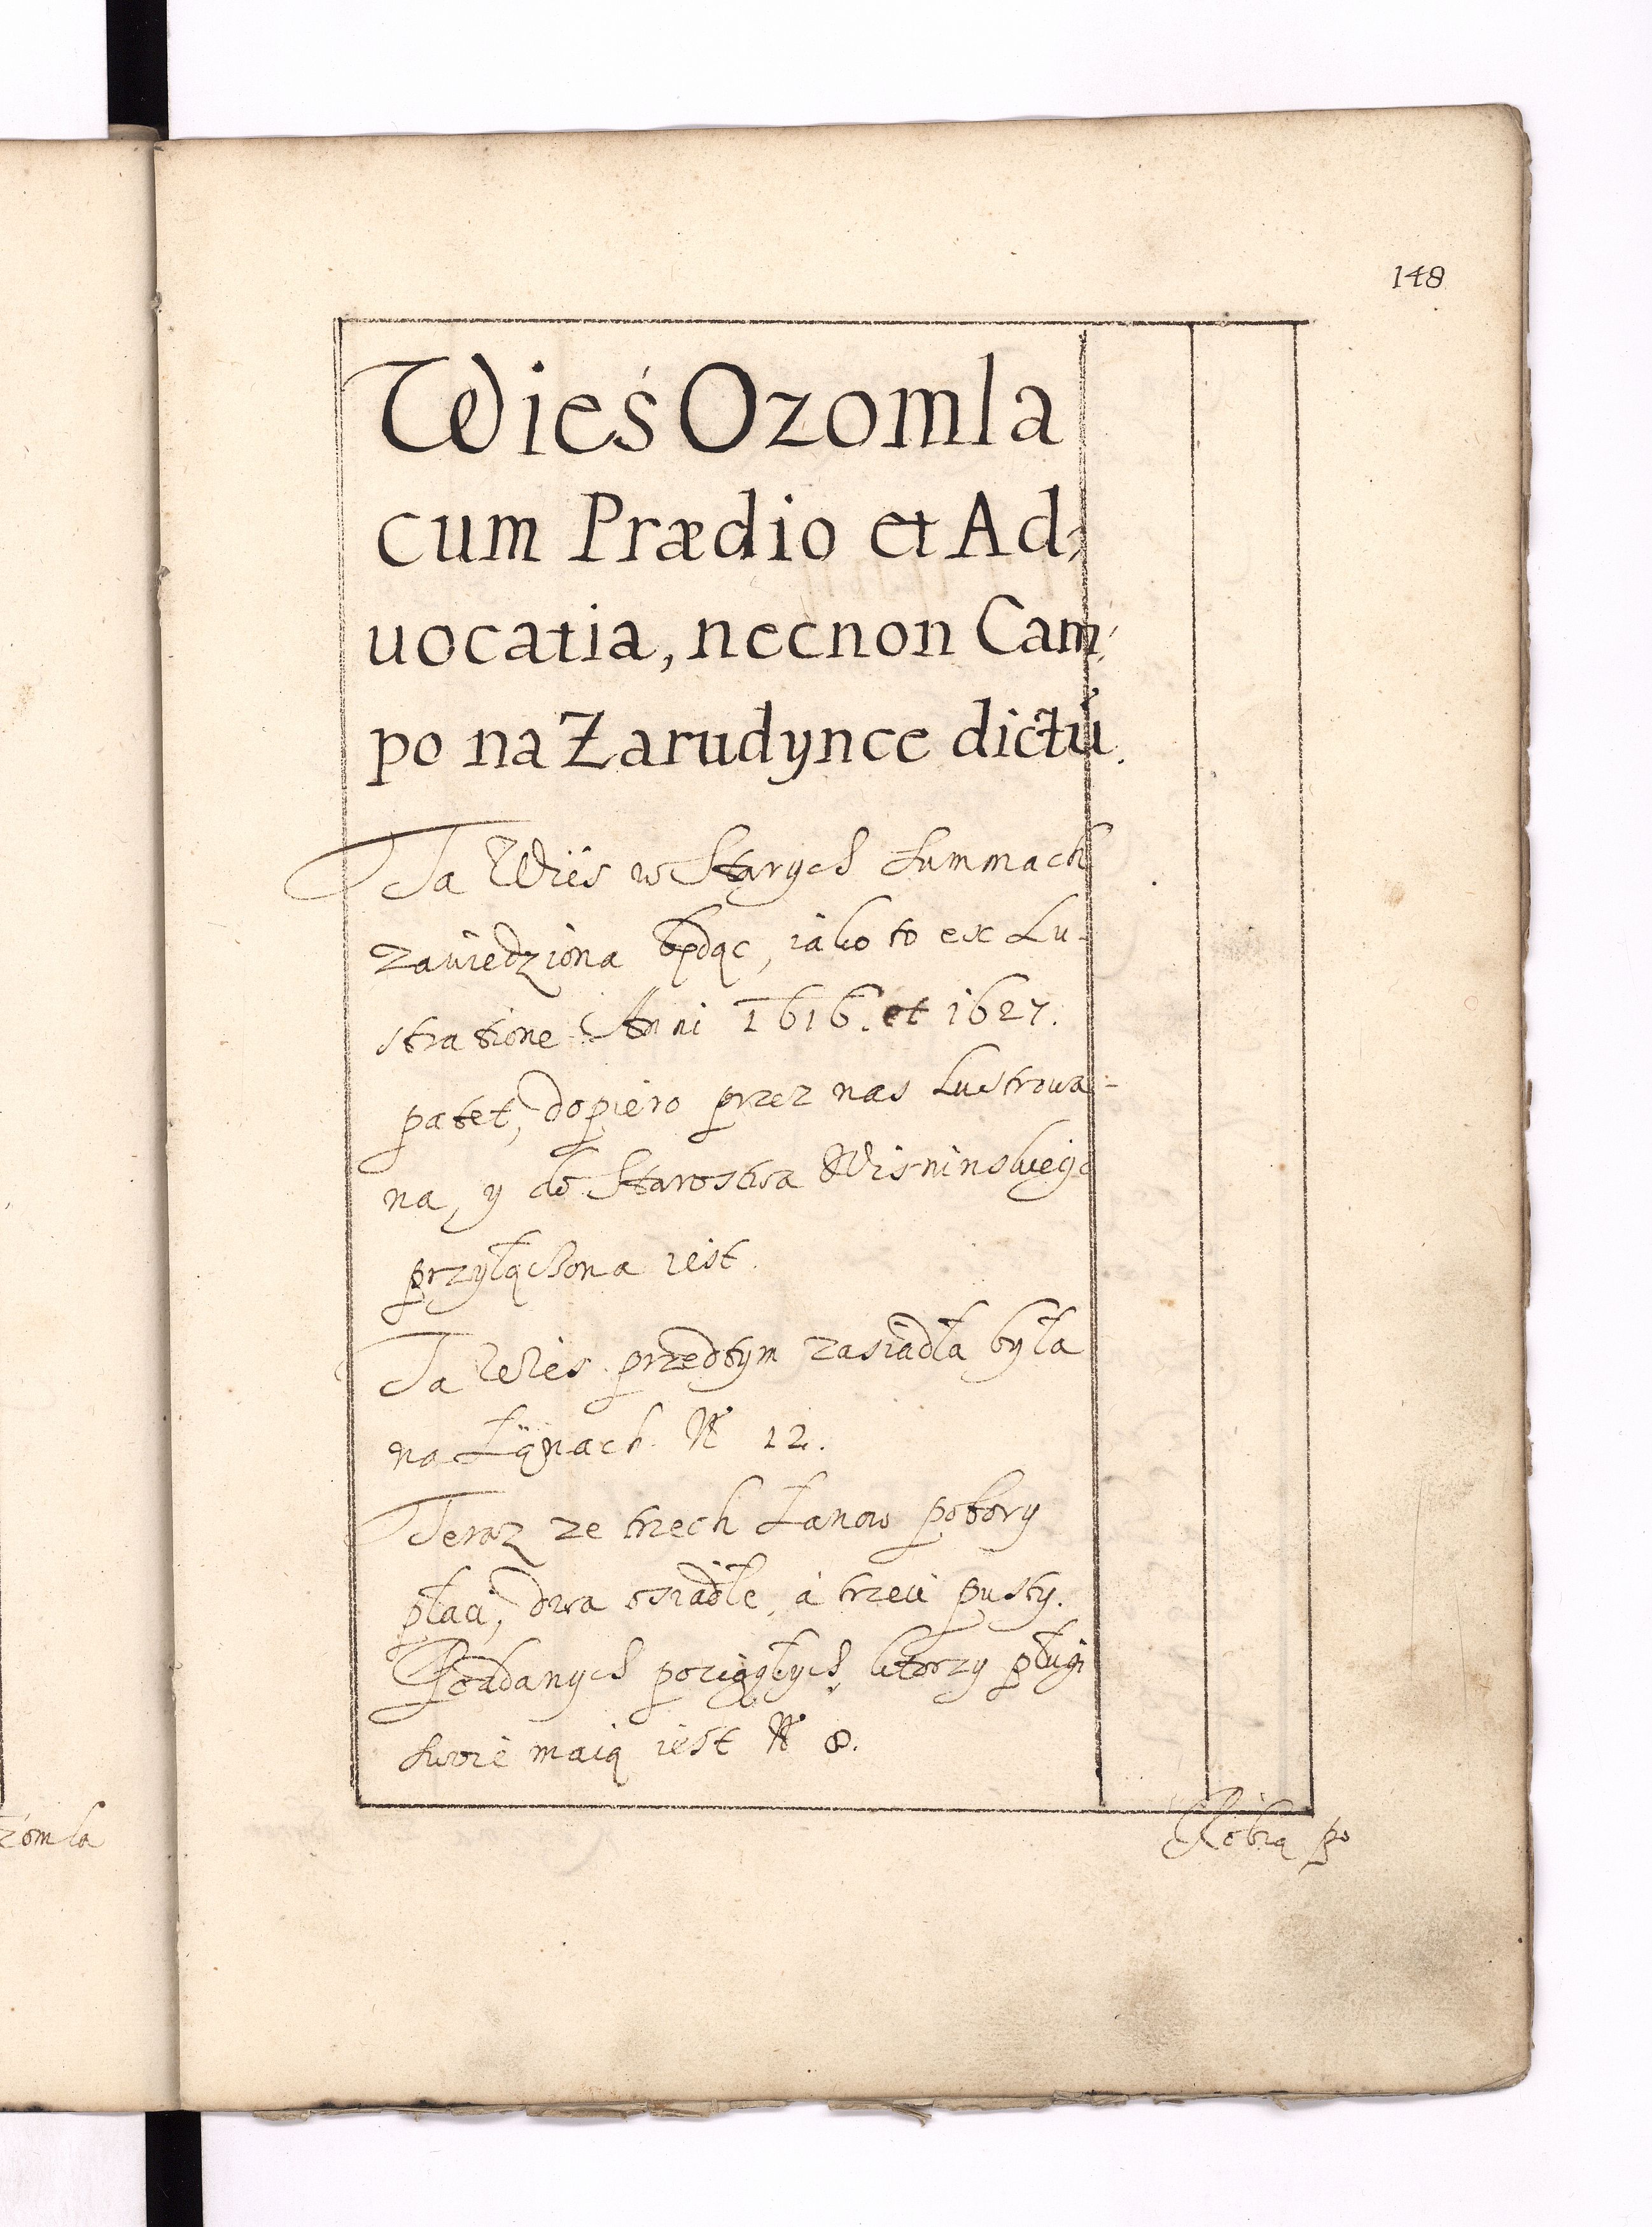 148
Wieś Ozomla
cum Prædio et Ad:
uocatia, necnon Cam:
po na Zarudynce dictu.
Ta Wieś w Starych Summach
zawiedziona będąc, iako to ex Lu-
stratione Anni 1616. et 1627.
patet, dopiero przez nas Lustrowa-
na, y do Starostwa Wisninskiego
przyłączona iest.
Ta Wies przedtym zasiadła była
na Łanach N 12.
Teraz ze trzech Łanow pobory
płaci, dwa osiadłe, a trzeci pusty.
Poddanych pociągłych, ktorzy pługi
swoie maią iest N 8.
zomla
Robią po